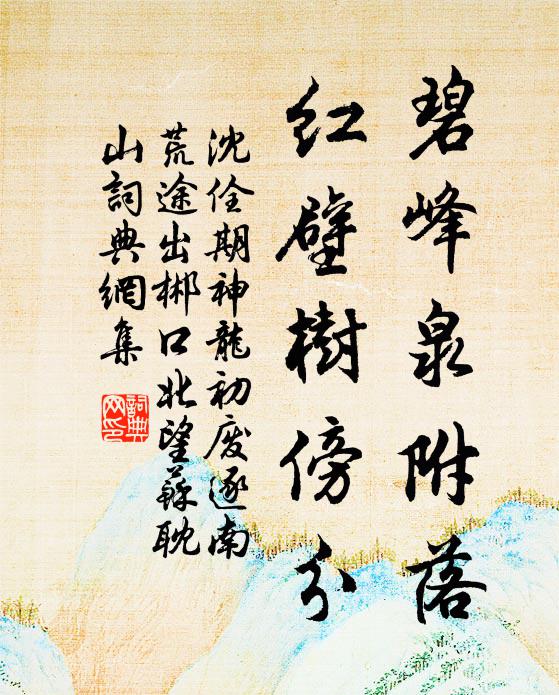 碧峰泉附落
紅壁樹傍分
沈佺期神龍初廢逐南
荒途出郴口北望蘇耽
山詞典網集
詞典
网印